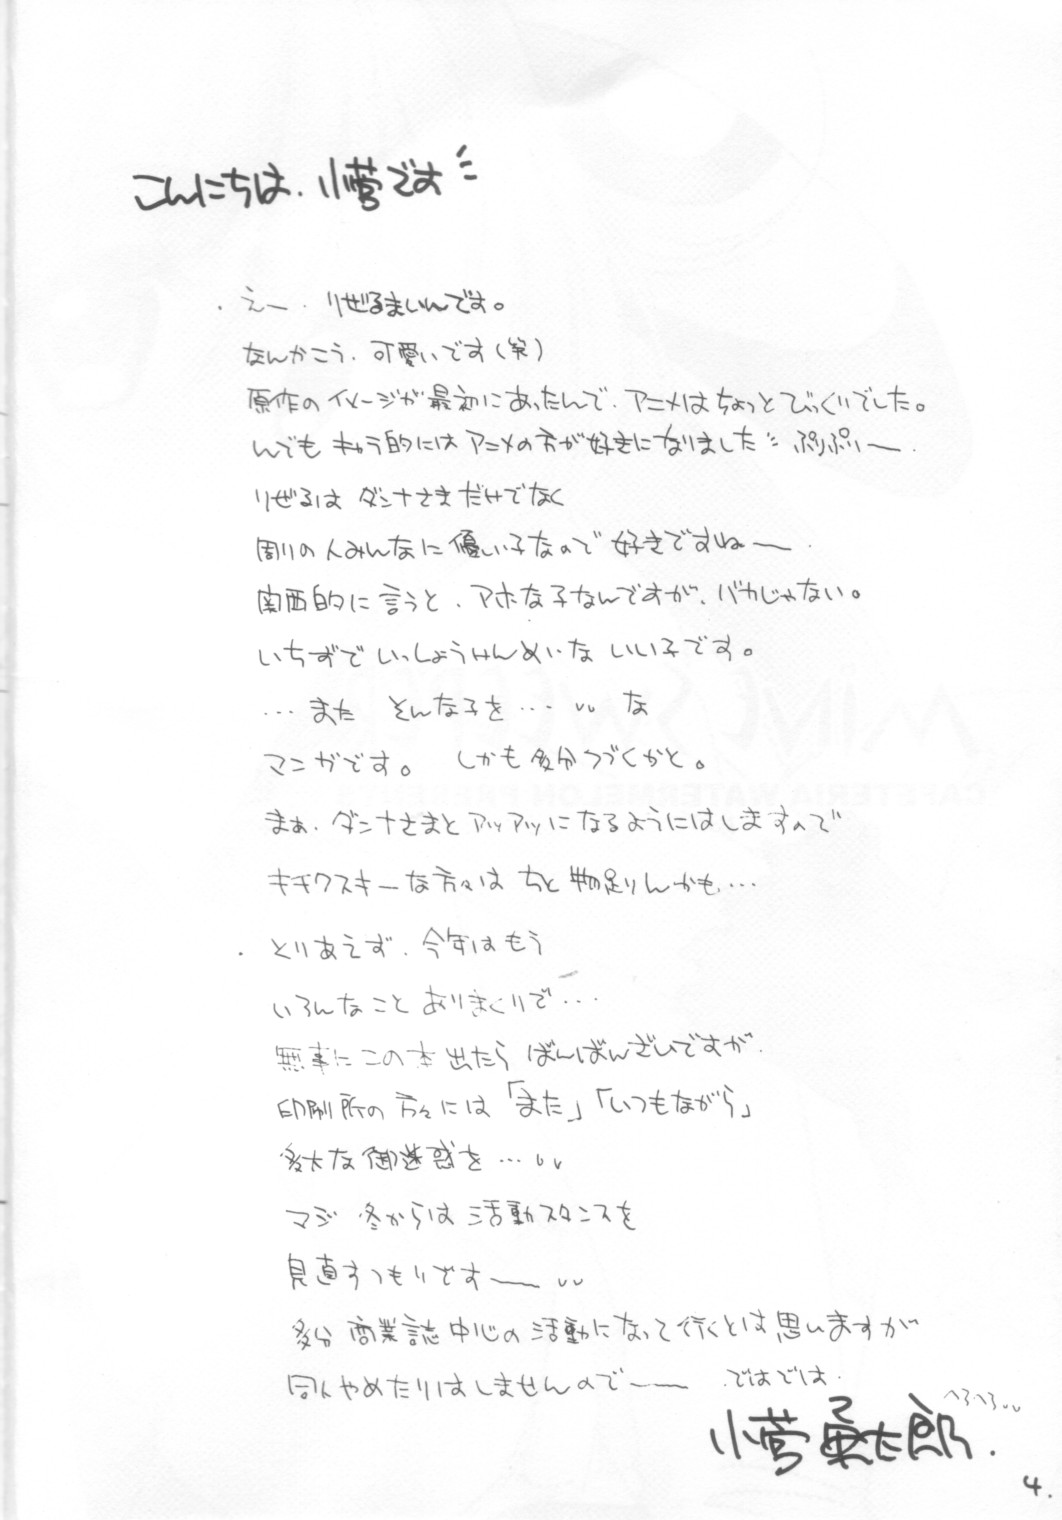 こんにちは、小菅です
・えー、りぜるまいんです。
なんかこう、可愛いです(笑)
原作のイメージが最初にあったんで、アニメはちょっとびっくりでした。
んでもキャラ的にはアニメの方が好きになりました ぷりぷりー
りぜるは ダンナさまだけでなく
周りの人みんなに優しい子なので好きですねー
関西的に言うと、アホな子なんですが、バカじゃない。
いちずで いっしょうけんめいな いい子です。
…また そんな子を… な
マンガです。 しかも多分つづくかと。
まぁ、ダンナさまとアツアツになるようにはしますので
キチクスキーな方々は ちと物足りんかも…
・とりあえず、今年はもう
いろんなこと ありまくりで…
無事にこの本出たら ばんばんざいですが、
印刷所の方々には「また」「いつもながら」
多大な御迷惑を…
マジ 冬からは 活動スタンスを
見直すつもりですー
多分 商業誌中心の活動になって行くとは思いますが
同人やめたりはしませんのでー ではでは
へろへろ
小菅勇太郎.
4.
MINE SWEEPER
CAFETERIA WATERMELON PRESENTS